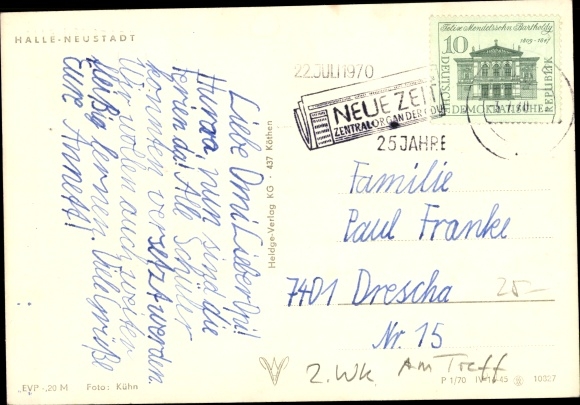 HALLE-NEUSTADT
Liebe Omi Lieber Opi!
Hurra, nun sind die
Ferien da! Alle Schüler
konnten versetzt werden.
Wir wollen auch weiter
fleißig lernen. Viele Grüße
Eure Annett!
Heldge-Verlag KG - 437 Köthen
22. JULI 1970
NEUE ZEIT
ZENTRALORGAN DER CDU
25 JAHRE
Felix Mendelssohn Bartholdy
1809-1847
10
DEUTSCHE
DEMOKRATISCHE
REPUBLIK
Familie
Paul Franke
7401 Drescha
Nr. 15
25-
2. WK Am Treff
EVP -,20 M Foto: Kühn
P 1/70 IV-14-45 10037